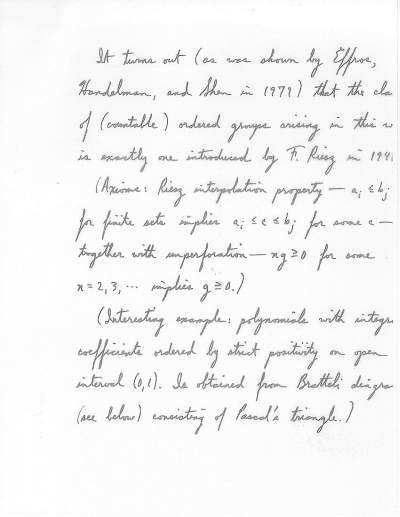 It turns out (as was shown by Effros,
Handelman, and Shen in 1979) that the cla
of (countable) ordered groups arising in this w
is exactly one introduced by F. Riesz in 194
(Axioms: Riesz interpolation property — aᵢ ≤ bⱼ
for finite sets implies aᵢ ≤ c ≤ bⱼ for some c —
together with unperforation — ng ≥ 0 for some
n = 2, 3, ⋯ implies g ≥ 0.)
(Interesting example: polynomials with integr
coefficients ordered by strict positivity on open
interval (0,1). Is obtained from Bratteli diagra
(see below) consisting of Pascal's triangle.)